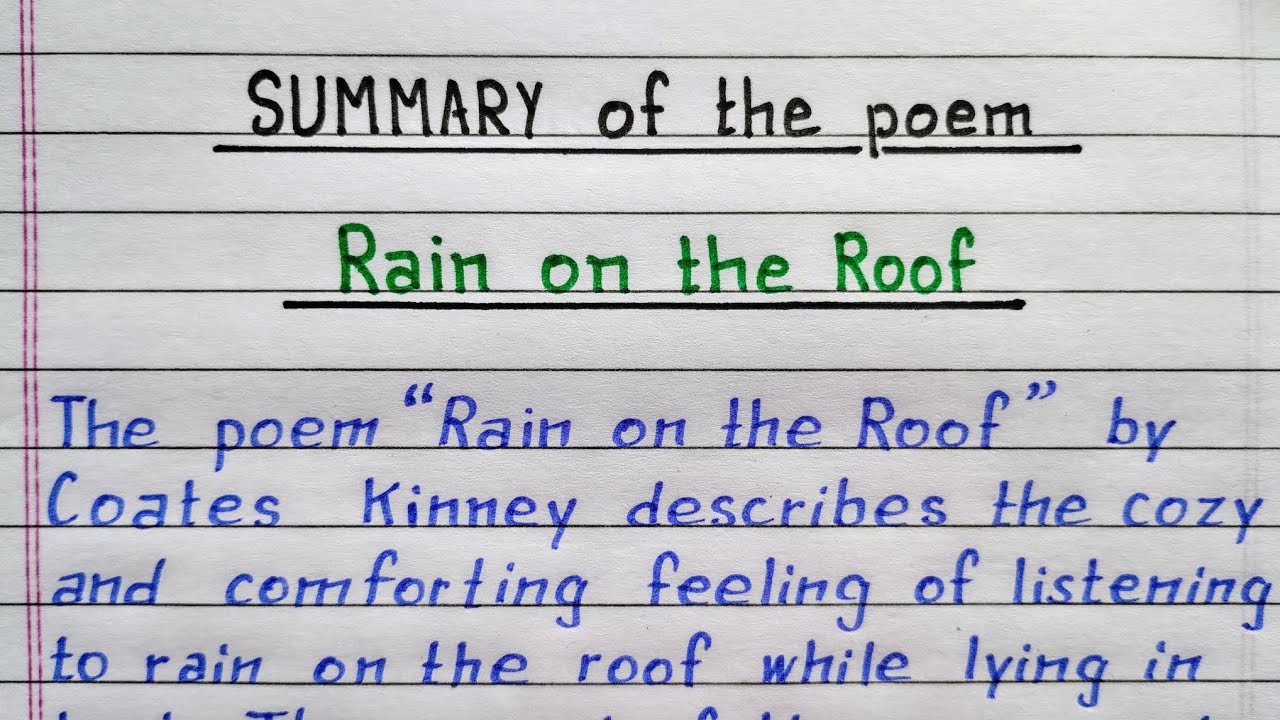 SUMMARY of the poem
Rain on the Roof
The poem “Rain on the Roof” by
Coates Kinney describes the cozy
and comforting feeling of listening
to rain on the roof while lying in